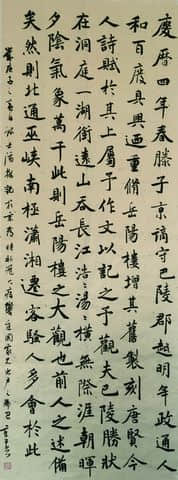 慶曆四年春滕子京謫守巴陵郡越明年政通人
和百廢具興迺重脩岳陽樓增其舊製刻唐賢今
人詩賦於其上屬予作文以記之予觀夫巴陵勝狀
在洞庭一湖銜遠山吞長江浩浩湯湯橫無際涯朝暉
夕陰氣象萬千此則岳陽樓之大觀也前人之述備
矣然則北通巫峽南極瀟湘遷客騷人多會於此